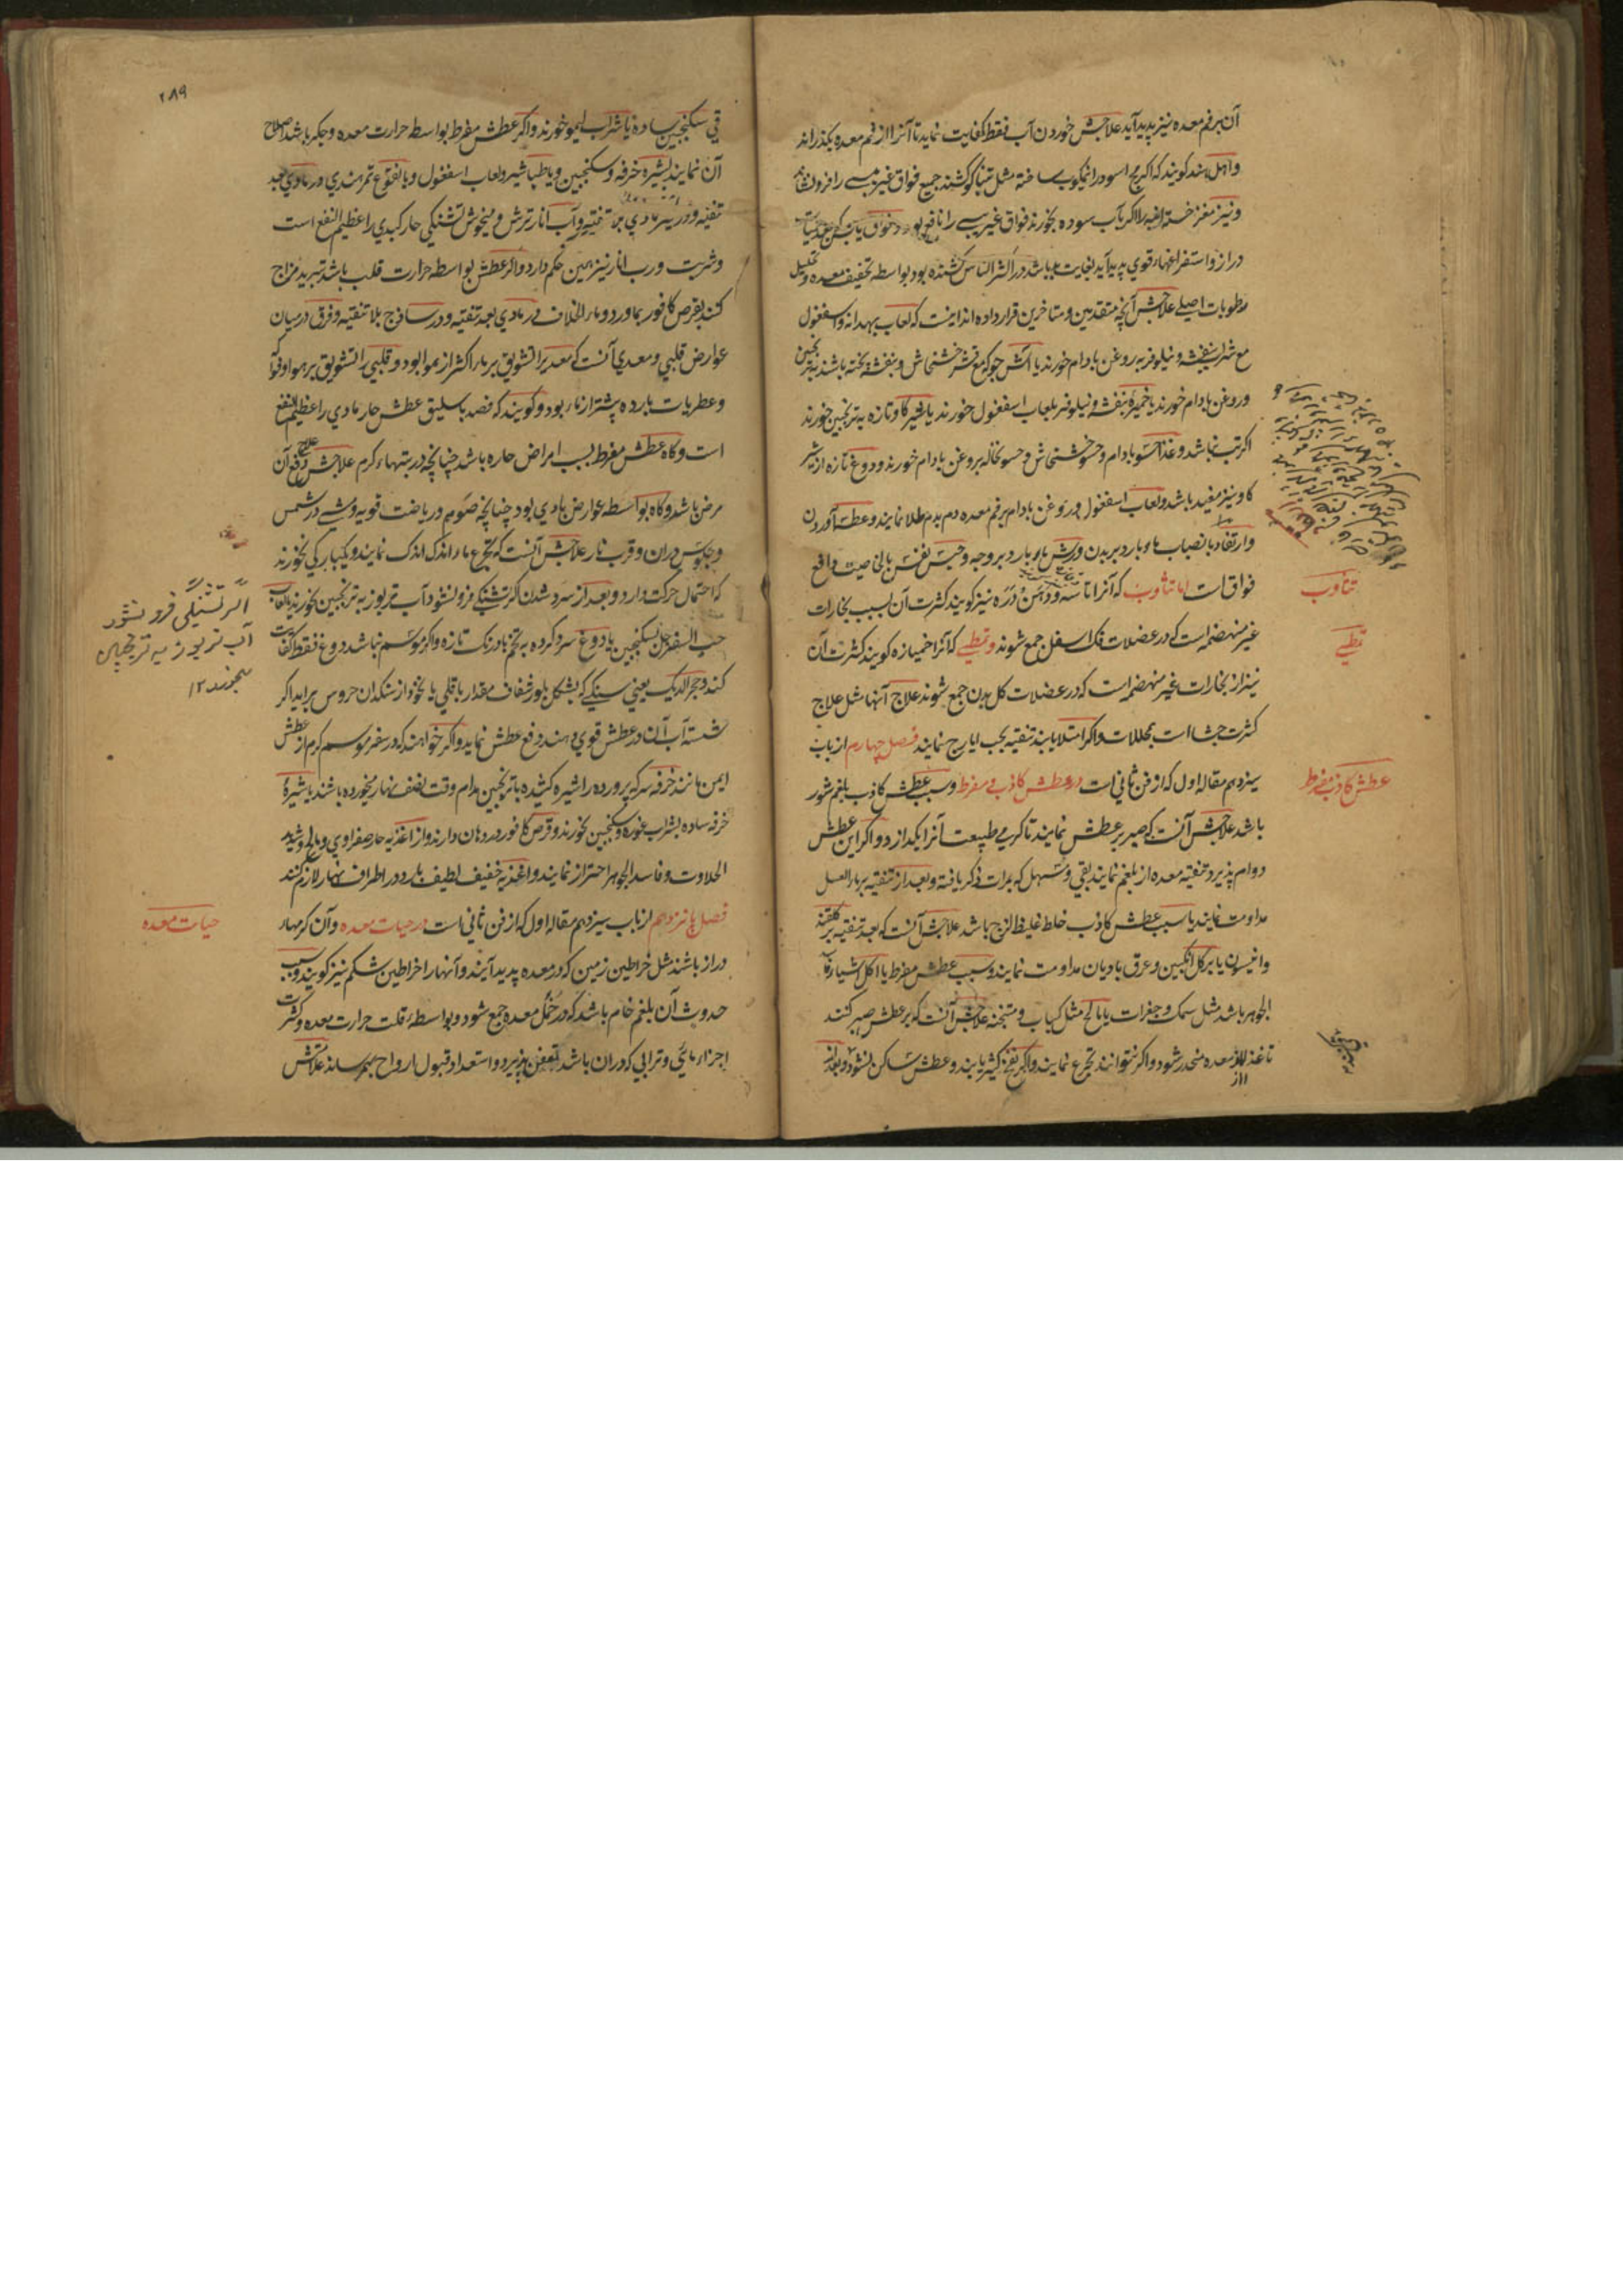 آن بر فم معده نیز پدید آید علاجش خوردن آب فقط کفایت نماید تا آنرا از فم معده بگذراند
و اهل هند کویند که اکر برج اسود را نیمکوب ساخته مثل تنباکو کشند جمیع فواق غیر یبسے را فرو نشاند
و نیز مغز خسته انبه را اکر بآب سوده بخورند فواق غیر یبسے را نافع بود و فواق یابس که بعد حمیات
دراز و استفراغهاء قوي پدید آید بغایت بد باشد در اکثر الناس کشنده بود بواسطه تجفیف معده و تحلیل
رطوبات اصلے علاجش آنچه متقدمین و متاخرین قرار داده اند اینست که لعاب بهدانه و اسفغول
مع شراب بنفشه و نیلوفر به روغن بادام خورند یا آش جو که مع قشر خشخاش و بنفشه پخته باشند به ترنجبین
و روغن بادام خورند یا خمیره بنفشه و نیلوفر بلعاب اسفغول خورند یا شیر کاو تازه به ترنجبین خورند
اکر تب نباشد و غذا حسو بادام و حسو خشخاش و حسو نخاله بروغن بادام خورند و دوغ تازه از شیر
کاو نیز مفید باشد و لعاب اسفغول و روغن بادام بر فم معده دم بدم طلا نمایند و عطسه آوردن
و ارتعاد بانصباب ماء بارد بر بدن و رش ماء بارد بر وجه و حبس نفس بالخاصیت دافع
فواق است اما تثاوب که آنرا ثاسه و دهن دره نیز کویند کثرت آن بسبب بخارات
غیر منهضمه است که در عضلات فک اسفل جمع شوند و تمطے که آنرا خمیازه کویند کثرت آن
نیز از بخارات غیر منهضمه است که در عضلات کل بدن جمع شوند علاج آنها مثل علاج
کثرت جشا است بمحللات و اکر امتلا یابند تنقیه بحب ایارج نمایند فصل چهارم از باب
سیزدهم مقاله اول که از فن ثانی است در عطش کاذب و مفرط و سبب عطش کاذب بلغم شور
باشد علاجش آنست که صبر بر عطش نمایند تا کرمی طبیعت آنرا بکدازد و اکر این عطش
دوام پذیرد تنقیه معده از بلغم نمایند بقی و مسهل که بمرات ذکر یافته و بعد از تنقیه بر ماء العسل
مداومت نمایند یا سبب عطش کاذب خلط غلیظ لزج باشد علاجش آنست که بعد تنقیه بر کلقند
و انیسون یا بر کل انکبین و عرق بادیان مداومت نمایند و سبب عطش مفرط یا اکل اشیاء
الجوهر باشد مثل سمک و جغرات یا مالح مثل کباب و متنجنه علاجش آنست که بر عطش صبر کنند
تا غذا از معده منحدر شود و اکر نتوانند تجرع نمایند و اکر نفخ کثیر یابند و عطش ساکن نشود و بعد از
تثاوب
تمطے
عطش کاذب مفرط
۲۸۹
قي سکنجبین ساده یا شراب لیمو خورند و اکر عطش مفرط بواسطه حرارت معده و جکر باشد اصلاح
آن نمایند بشیره خرفه و سکنجبین و یا طباشیر و لعاب اسفغول و یا نقوع تمر هندي و در مادي بعد
تنقیه و در غیر مادي بلا تنقیه و آب انار ترش و میخوش تشنکي حار کبدي را عظیم النفع است
و شربت و رب انار نیز همین حکم دارد و اکر عطش بواسطه حرارت قلب باشد تبرید مزاج
کنند بقرص کافور بماورد و ماء الخلاف در مادي بعد تنقیه و در ساذج بلا تنقیه و فرق درمیان
عوارض قلبي و معدي آنست که معدي را تشویق بر ماء اکثر از هوا بود و قلبي را تشویق بر هوا و فواکه
و عطریات بارده بیشتر از ماء بود و کویند که فصد باسلیق عطش حار مادي را عظیم النفع
است و کاه عطش مفرط بسبب امراض حاره باشد چنانچه در تبهاء کرم علاجش علاج دفع آن
مرض باشد و کاه بواسطه عوارض بادي بود چنانچه صوم و ریاضت قویه و مشے در شمس
و جلوس دران و قرب نار علاجش آنست که تجرع ماء اندک اندک نمایند و یکبارکي نخورند
که احتمال حرکت دارد و بعد از سرد شدن اکر تشنکے فرو نشود آب تربوز به ترنجبین بخورند یا لعاب
حب السفرجل بسکنجبین یا دوغ سرد کرده به تخم بادرنک تازه و اکر موسم نباشد دوغ فقط کفایت
کند و حجر الدیک یعنی سنکے که بشکل بلور شفاف مقدار باقلي یا نخود از سنکدان خروس برآید اکر
شسته آب آن در عطش قوي دهند دفع عطش نماید و اکر خواهند که در سفر موسم کرم از عطش
ایمن مانند خرفه سرکه پرورده را شیره کشیده با ترنجبین مدام وقت نصف نهار میخورده باشند یا شیره
خرفه ساده بشراب غوره و سکنجبین بخورند و قرص کافور در دهان دارند و از اغذیه حار صفراوي و مالح و شدید
الحلاوت و فاسد الجوهر احتراز نمایند و اغذیه خفیف لطیف بارد در اطراف نهار لازم کنند
فصل پانزدهم از باب سیزدهم مقاله اول که از فن ثانی است در حیات معده و آن کرمهاء
دراز باشند مثل خراطین زمین که در معده پدید آیند و آنها را خراطین شکم نیز کویند و سبب
حدوث آن بلغم خام باشد که در خمل معده جمع شود و بواسطه قلت حرارت معده و کثرت
اجزاء مائي و ترابي که دران باشد تعفن پذیرد و استعداد قبول ارواح بهم رساند علاجش
اکر تشنگی فرو نشود
آب تربوز به ترنجبین
بخورند ۱۲
حیات معده